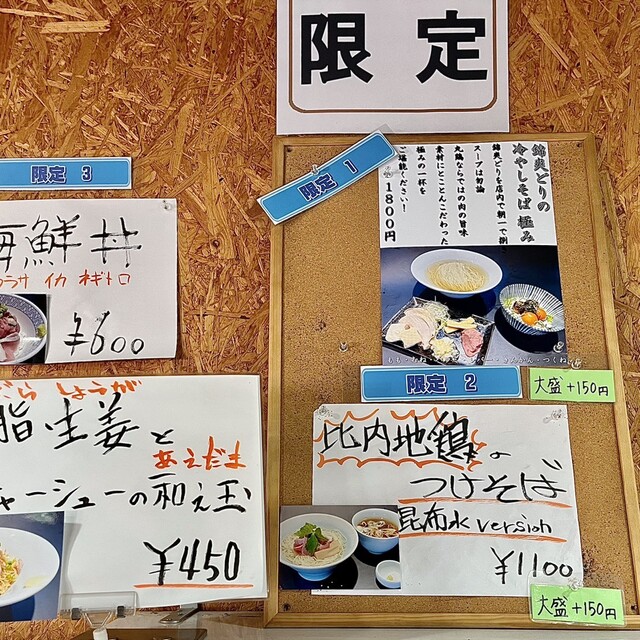 限定
限定 1
錦爽どりの
冷やしそば 極み
錦爽どりを店内で朝一で捌
スープは勿論
丸鶏ならではの肉の旨味
素材にとことんこだわった
極みの一杯を
ご堪能ください！
1800円
限定 2
大盛+150円
比内地鶏の
つけそば
昆布水version
¥1100
大盛+150円
限定 3
海鮮丼
イカ ネギトロ
¥600
しょうが
脂生姜と
あえだま
チャーシューの和え玉
¥450